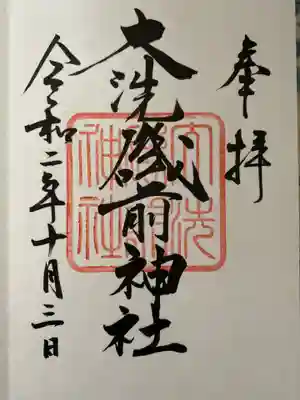 奉拝
大洗磯前神社
令和二年十月三日
大洗磯前神社